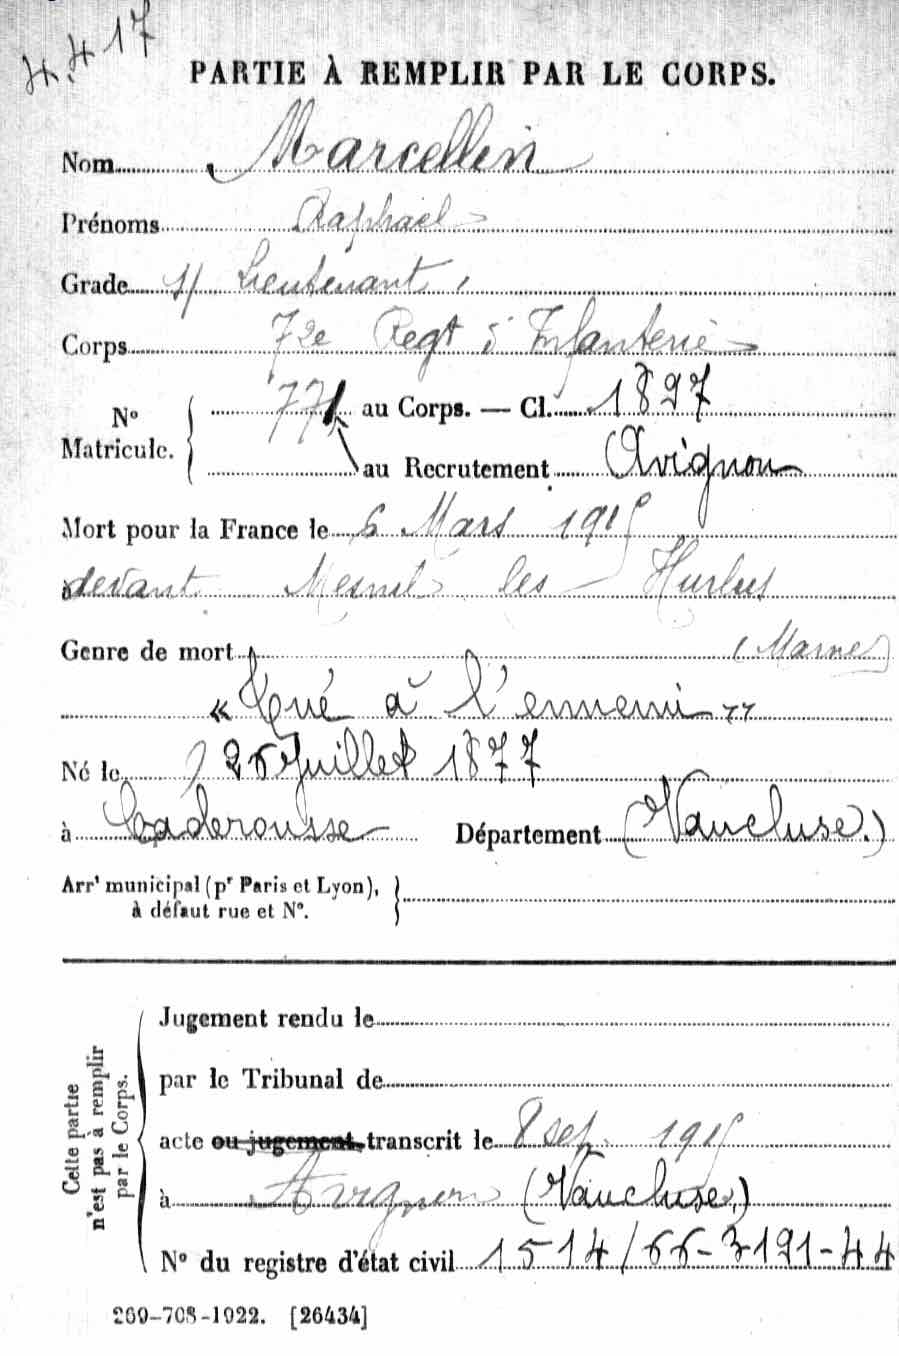 4.4 17
PARTIE À REMPLIR PAR LE CORPS.
Nom Marcellin
Prénoms Raphael
Grade S/ Lieutenant
Corps 72e Regt d'Infanterie
N° Matricule. 771 au Corps. — Cl. 1897
au Recrutement Avignon
Mort pour la France le 6 Mars 1915
devant Mesnil les Hurlus
(Marne)
Genre de mort
« Tué à l'ennemi "
Né le 26 Juillet 1877
à Caderousse Département (Vaucluse.)
Arrt municipal (pr Paris et Lyon),
à défaut rue et N°.
Cette partie
n'est pas à remplir
par le Corps.
Jugement rendu le
par le Tribunal de
acte ou jugement transcrit le 8 sep. 1915
à Avignon (Vaucluse.)
N° du registre d'état civil 1514/66-3191-44
269-708-1922. [26434]